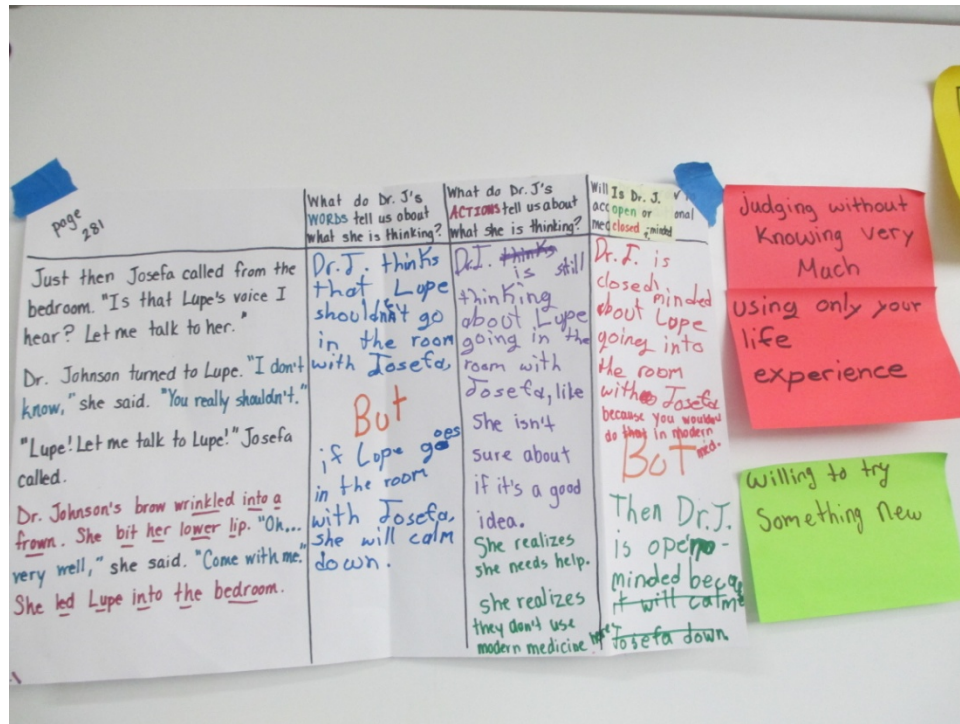 page
281
Just then Josefa called from the
bedroom. "Is that Lupe's voice I
hear? Let me talk to her."
Dr. Johnson turned to Lupe. "I don't
know," she said. "You really shouldn't."
"Lupe! Let me talk to Lupe!" Josefa
called.
Dr. Johnson's brow wrinkled into a
frown. She bit her lower lip. "Oh...
very well," she said. "Come with me."
She led Lupe into the bedroom.
What do Dr. J's
WORDS tell us about
what she is thinking?
Dr. J. thinks
that Lupe
shouldn't go
in the room
with Josefa,
But
if Lupe goes
in the room
with Josefa,
she will calm
down.
What do Dr. J's
ACTIONS tell us about
what she is thinking?
Dr. J. thinks
is still
thinking
about Lupe
going in the
room with
Josefa, like
She isn't
sure about
if it's a good
idea.
She realizes
she needs help.
she realizes
they don't use
modern medicine here
Will
Is Dr. J.
open or
closed-minded
Dr. J. is
closed minded
about Lupe
going into
the room
with Josefa
because you wouldn't
do that in modern
med.
BUT
Then Dr. J.
is open-
minded
it will calm
Josefa down.
judging without
Knowing very
Much
using only your
life
experience
willing to try
Something new